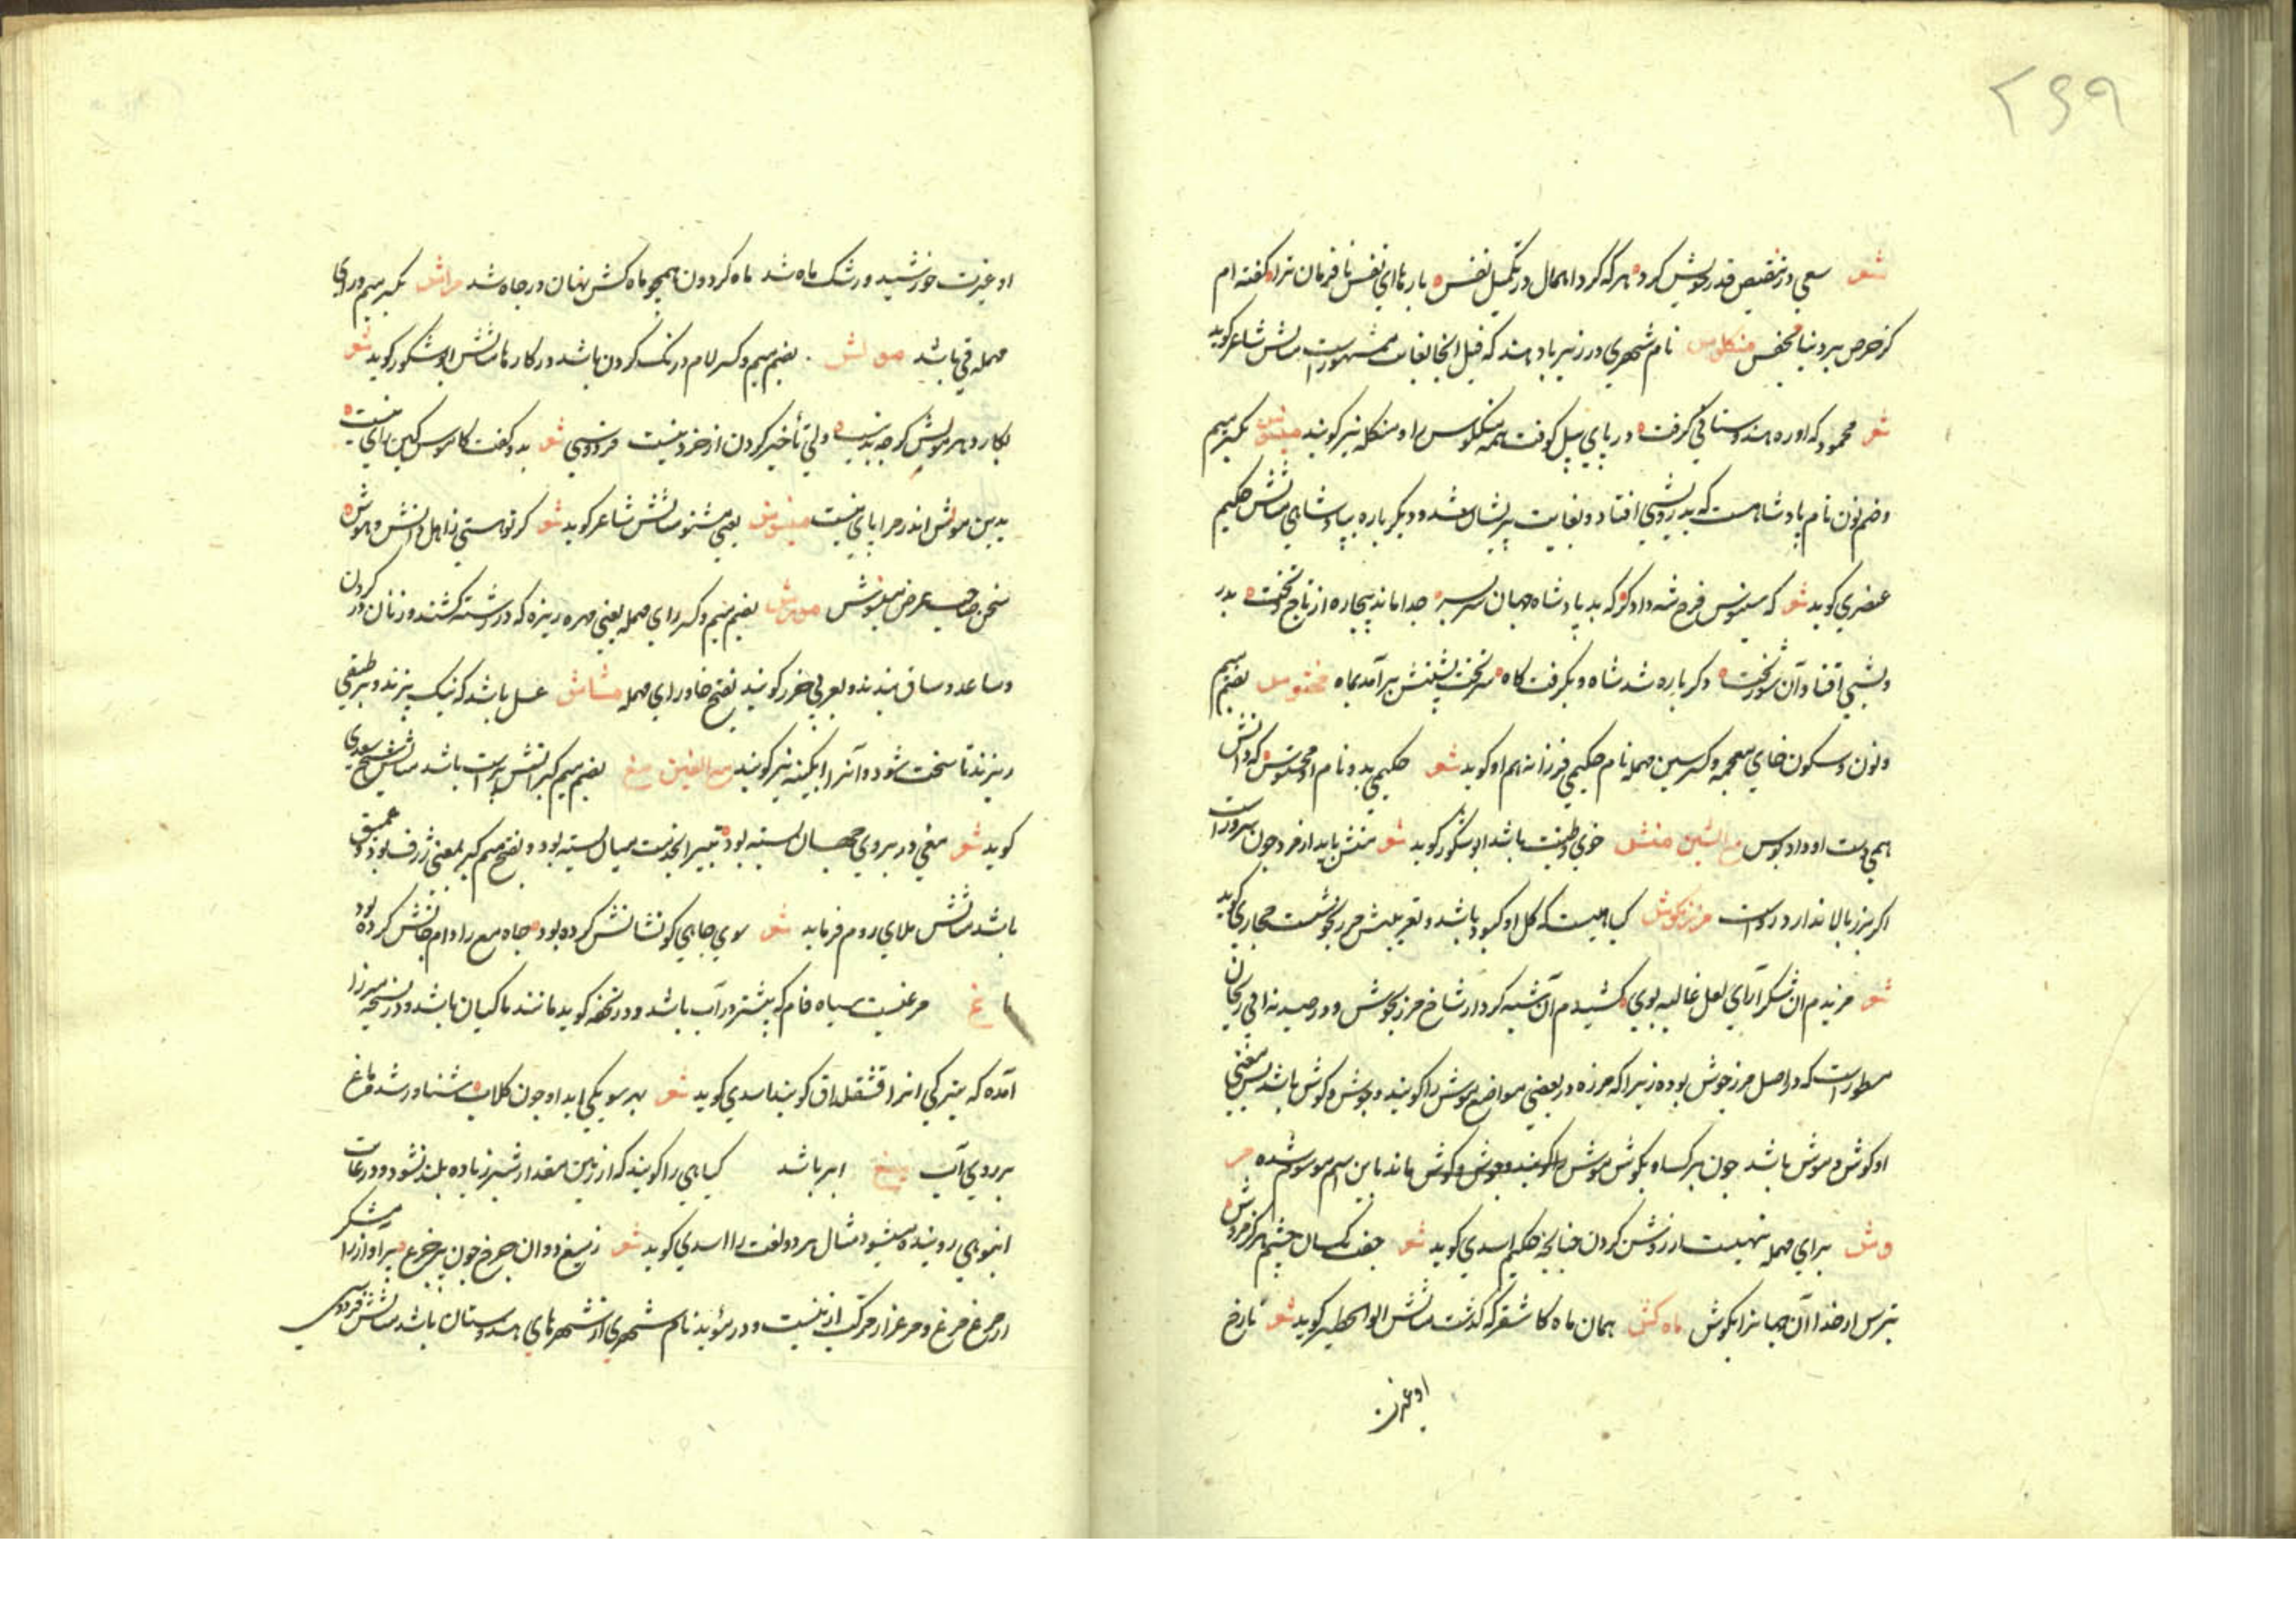 ۲۶۹
شعر سعی در تنقیص قدر خویش کرد هر که کرد اهمال در تکمیل نفس بارها ای نفس نافرمان ترا گفته ام
کز حرص بر دنیا مخفس منکلوس نام شهری در زیرباد هند که فیل انجا بغایت مشهور است مثالش شاعر کوید
شعر محمود که او ره هندوستانی گرفت در پای پیل کوفت همه منکلوس را و منکله نیز کویند مینوس بکسر میم
و ضم نون نام پادشاهست که بدرویشی افتاد و بغایت پریشان شد و دیگر باره بپادشاهی مثالش حکیم
عنصری کوید شعر که مینوس فرخ شه دادکر که بد پادشاه جهان سر بسر جدا ماند بیچاره از تاج و تخت بدر
ویشی افتاد آن شوربخت دکر باره شد شاه و بگرفت کاه سر تخت بختش برآمد بماه مخنوس بضم میم
و نون و سکون خای معجمه و کسر سین مهمله نام حکیمی فرزانه هم او کوید شعر حکیمی بد و نام او مخنوس که دانش
همی دست او داد بوس مع الشین منش خوی و طینت باشد ابو شکور کوید شعر منش باید از مرد چون سرو راست
اکر برز و بالا ندارد رواست مرزنکوش کیاهیست که کل او کبود باشد و تعریبش مرزنجوشست حجازی کوید
شعر مزیدم آن شکر آرای لعل غالیه بوی کشیدم آن شبه کردار شاخ مرزنجوش و در صیدنه ابی ریحان
مسطور است که در اصل مرزجوش بوده زیرا که مرزه در بعضی مواضع موش را کویند و جوش و کوش باشد پس معنی
او کوش موش باشد چون برک او بکوش موش ماند باین اسم موسوم شده مر
وش برای مهمله نهیست از روشن کردن چنانچه حکیم اسدی کوید شعر
بترس از خدا آن جهانرا بکوش ماه کش همان ماه کاشغر که کذشت مثالش ابو الخطیر کوید شعر تا رخ
او غیرت
او غیرت خورشید و رشک ماه شد ماه کردون همچو ماه کش نهان در چاه شد مراش بکسر میم و رای
مهمله قی باشد مولش بضم میم و کسر لام درنگ کردن باشد در کارها مثالش ابو شکور کوید شعر
بکار در مولش کرچه بد نیست ولی تأخیر کردن از خرد نیست فردوسی شعر بدو گفت کاموس کین رای نیست
بدین مولش اندر مرا پای نیست مینوش یعنی مشنو مثالش شاعر کوید شعر کر تو هستی ز اهل دانش و هوش
سخن صاحب غرض مینوش مورش بضم میم و کسر رای مهمله یعنی مهره ریزه که در رشته کشند و زنان در کردن
و ساعد و ساق بندند و بعربی خرز کویند بفتح خا و رای مهمله مشاش عسل باشد که نیک بپزند و بر طبقی
ریزند تا سخت شود و آنرا آبکینه نیز کویند مع الغین مغ بضم میم کبر آتش پرست باشد مثالش شیخ سعدی
کوید شعر مغی در بروی جهان بسته بود بتی را بخدمت میان بسته بود و بفتح میم کبر بمعنی ژرف بود و عمیق
باشد مثالش ملای روم فرماید شعر سوی چاهی کو نشانش کرده بود چاه مغ را دام جانش کرده بود
ماغ مرغیست سیاه فام که بیشتر در آب باشد و در تحفه کوید مانند ماکیان باشد و در نسخه میرزا
آمده که بترکی انرا قشقلداق کویند اسدی کوید شعر بهر سو یکی ابدان چون کلاب شناور شده ماغ
بر روی آب میغ ابر باشد کیاهی را کویند که از زمین مقدار شبر زیاده بلند نشود و در غایت
انبوهی روینده میشود مثال هر دو لغت را اسدی کوید شعر ز میغ
از مرغ مرغ و مرغزار مرکب ازینست و در مؤید نام شهری از شهرهای هندوستان باشد مثالش فردوسی